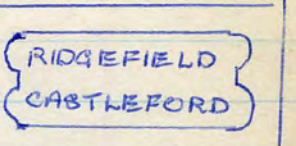 RIDGEFIELD
CASTLEFORD